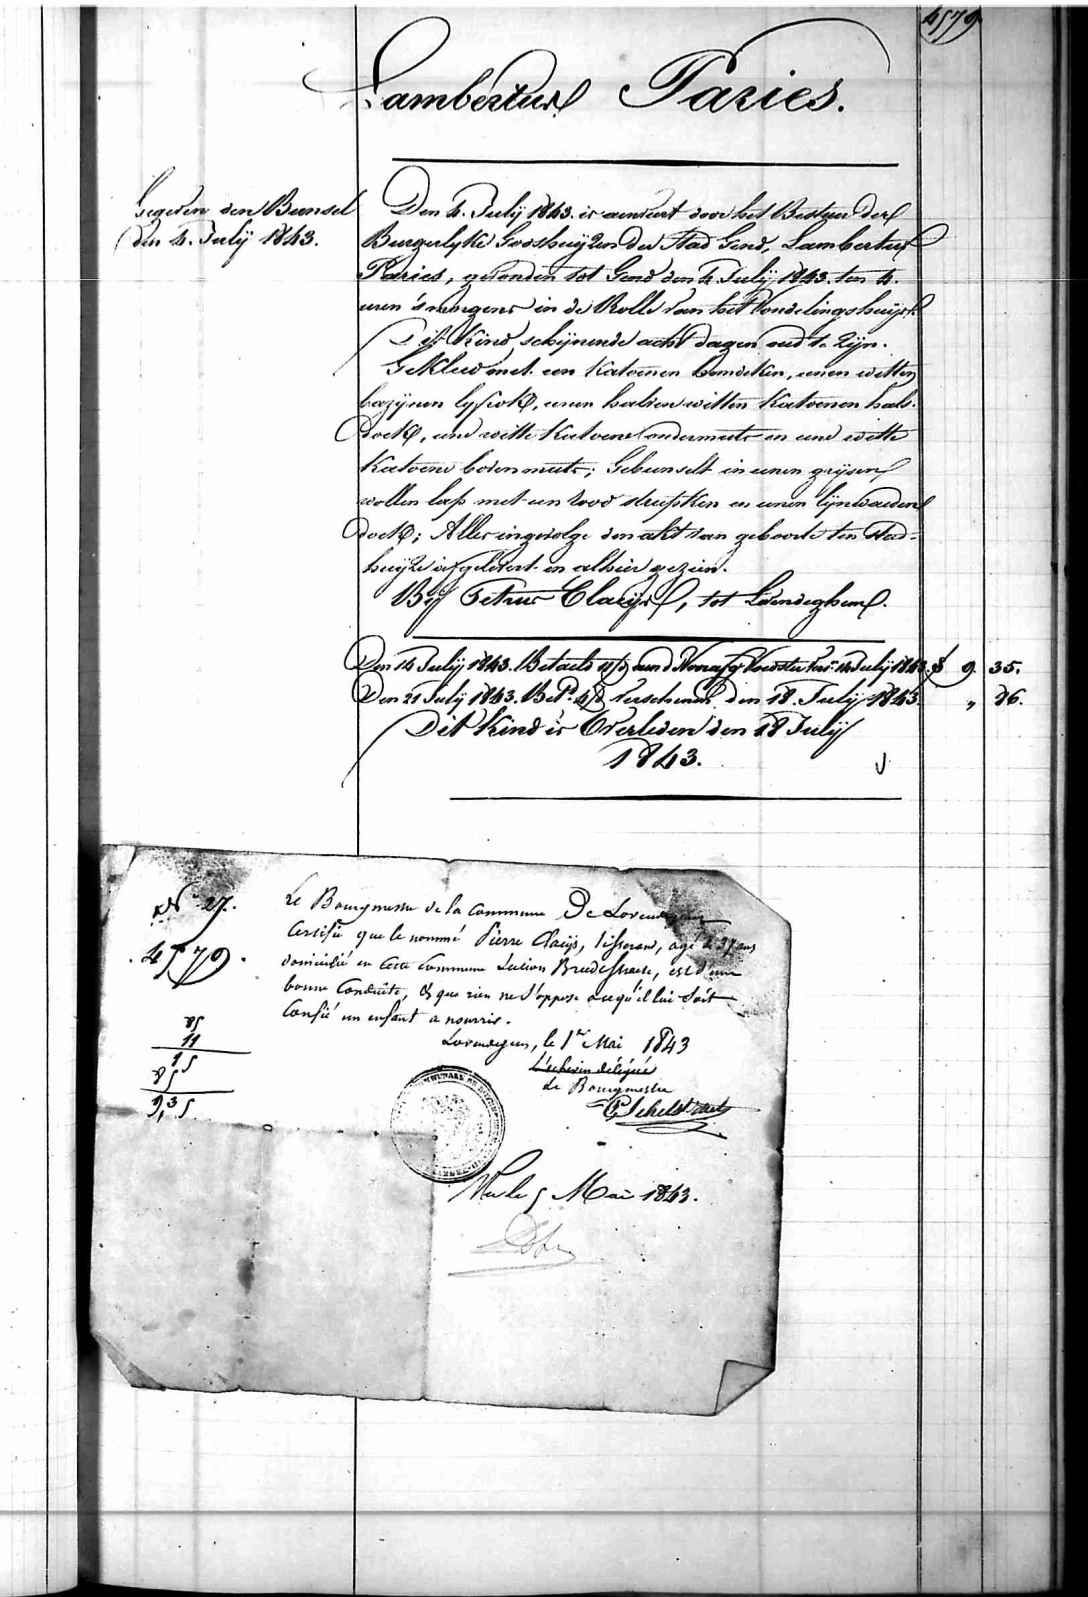 4579
Lambertus Paries.
Gegeven den Bunsel
den 4. July 1843.
Den 4. July 1843. is aenveirt door het Bestuer der
Burgerlyke Godshuyzen der Stad Gend, Lambertus
Paries, gevonden tot Gend den 4. July 1843. ten 4.
uren 's morgens in de Rolle van het Vondelingshuys.
Dit Kind schynende acht dagen oud te zyn.
Gekleed met een Katoenen hemdeken, eenen witten
bazynen lyfrok, eenen halven witten Katoenen hals-
doek, eene witte Katoene ondermuts en eene witte
Katoene bovenmuts; Gebunselt in eenen gryzen
wollen lap met een rood streepken en eenen lynwaeden
doek; Alles ingevolge den akt van geboorte ten Stad-
huyze afgelevert en alhier gezien.
By Petrus Claeys, tot Lovendeghem.
Den 14 July 1843. Betaelt July 1843. 9. 35.
Den 21 July 1843. Bet. verschenen den 18. July 1843. " 86.
Dit Kind is Overleden den 18 July
1843.
N° 27.
4579.
85
11
85
85
9,35
Le Bourgmestre de la commune De
Certifie que le nommé Pierre Claeys, tisserand, agé de 37 ans
domicilié en cette commune section , est d'une
bonne conduite, & que rien ne s'oppose a ce qu'il lui soit
Confié un enfant a nourrir.
Lovendegem, le 1er Mai 1843
L'echevin délégué
Le Bourgmestre
Vu le 5 Mai 1843.